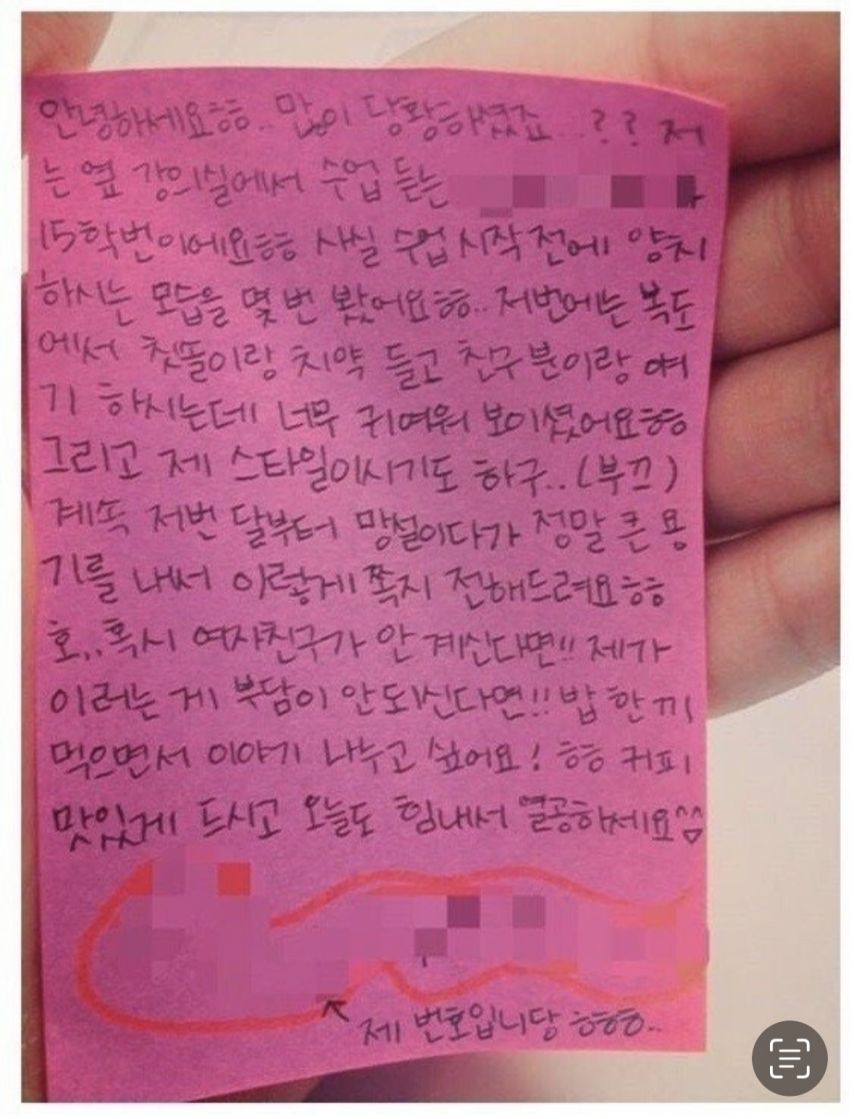 안녕하세요ㅎㅎ.. 많이 당황하셨죠...?? 저
는 옆 강의실에서 수업 듣는
15학번이에요ㅎㅎ 사실 수업 시작 전에 양치
하시는 모습을 몇 번 봤어요ㅎㅎ.. 저번에는 복도
에서 칫솔이랑 치약 들고 친구분이랑 얘
기 하시는데 너무 귀여워 보이셨어요ㅎㅎ
그리고 제 스타일이시기도 하구..(부끄)
계속 저번 달부터 망설이다가 정말 큰 용
기를 내서 이렇게 쪽지 전해드려요ㅎㅎ
호,,혹시 여자친구가 안 계신다면!! 제가
이러는 게 부담이 안되신다면!! 밥 한 끼
먹으면서 이야기 나누고 싶어요! ㅎㅎ 커피
맛있게 드시고 오늘도 힘내서 열공하세요^^
제 번호입니당 ㅎㅎㅎ..